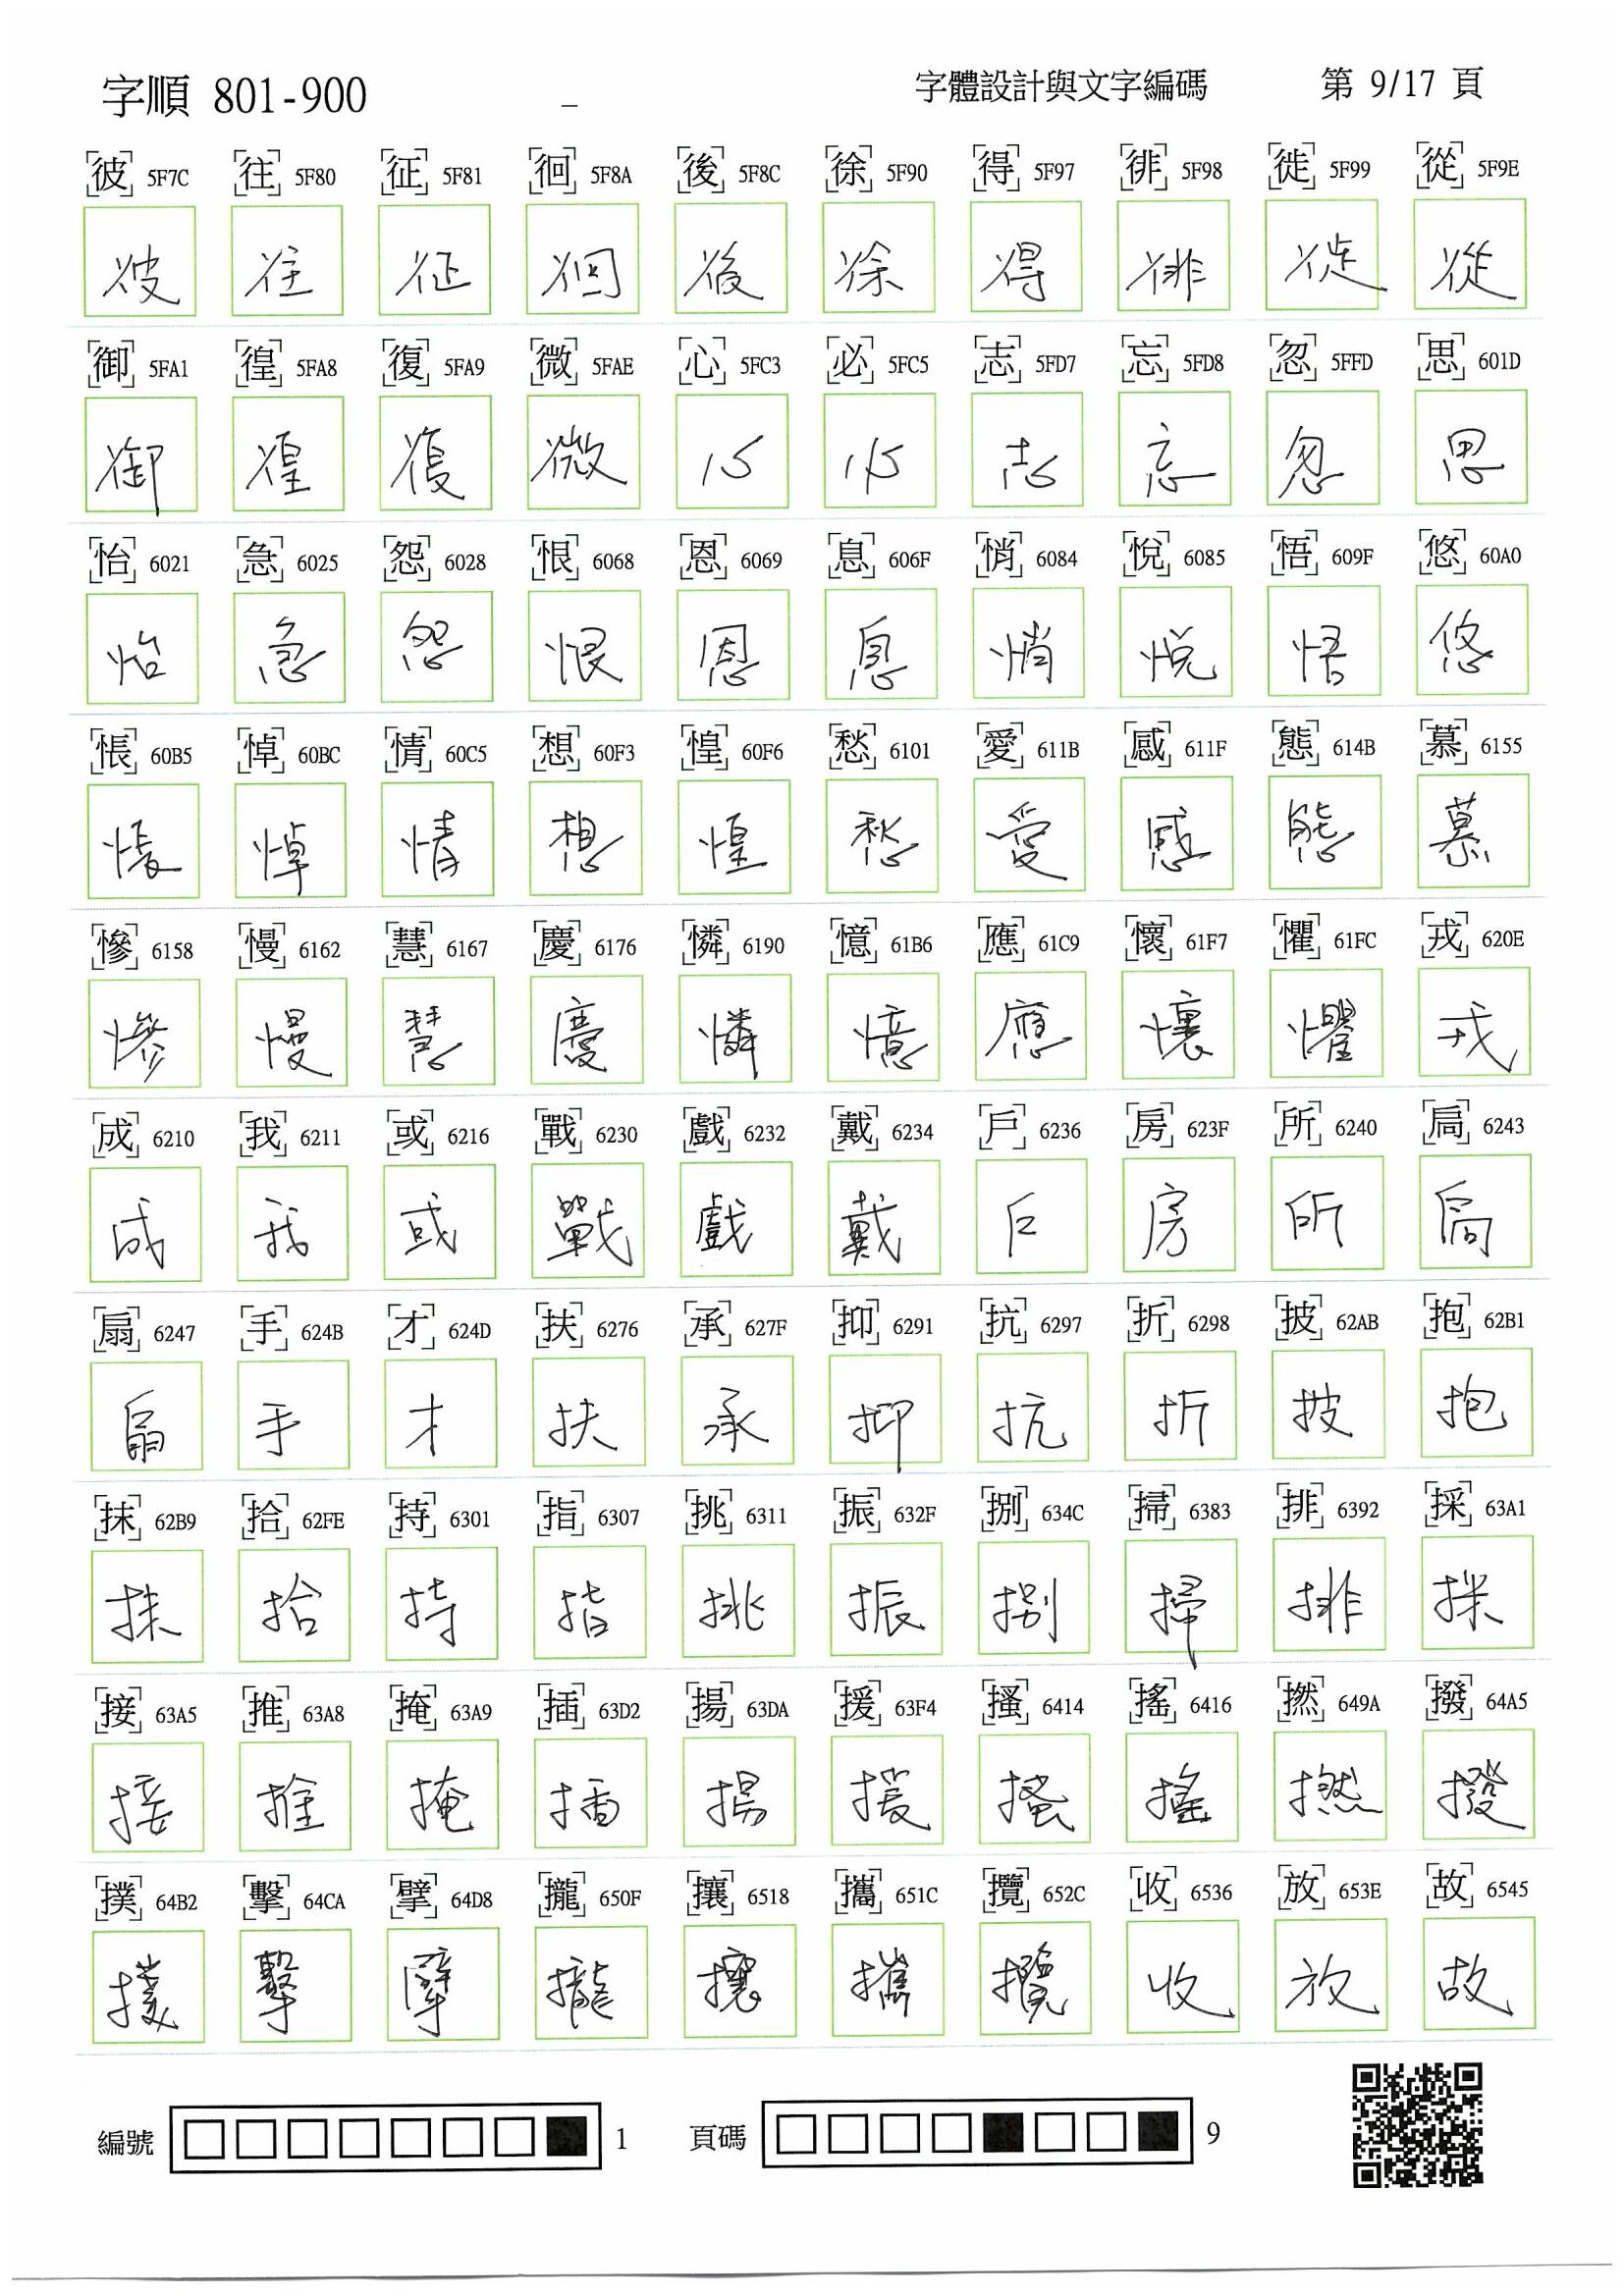 字順 801-900 字體設計與文字編碼 第 9/17 頁
彼 5F7C 往 5F80 征 5F81 徊 5F8A 後 5F8C 徐 5F90 得 5F97 徘 5F98 徙 5F99 從 5F9E
彼 往 征 徊 後 徐 得 徘 徙 從
御 5FA1 徨 5FA8 復 5FA9 微 5FAE 心 5FC3 必 5FC5 志 5FD7 忘 5FD8 忽 5FFD 思 601D
御 徨 復 微 心 必 志 忘 忽 思
怡 6021 急 6025 怨 6028 恨 6068 恩 6069 息 606F 悄 6084 悅 6085 悟 609F 悠 60A0
怡 急 怨 恨 恩 息 悄 悅 悟 悠
悵 60B5 悼 60BC 情 60C5 想 60F3 惶 60F6 愁 6101 愛 611B 感 611F 態 614B 慕 6155
悵 悼 情 想 惶 愁 愛 感 態 慕
慘 6158 慢 6162 慧 6167 慶 6176 憐 6190 憶 61B6 應 61C9 懷 61F7 懼 61FC 戎 620E
慘 慢 慧 慶 憐 憶 應 懷 懼 戎
成 6210 我 6211 或 6216 戰 6230 戲 6232 戴 6234 戶 6236 房 623F 所 6240 扃 6243
成 我 或 戰 戲 戴 戶 房 所 扃
扇 6247 手 624B 才 624D 扶 6276 承 627F 抑 6291 抗 6297 折 6298 披 62AB 抱 62B1
扇 手 才 扶 承 抑 抗 折 披 抱
抹 62B9 拾 62FE 持 6301 指 6307 挑 6311 振 632F 捌 634C 掃 6383 排 6392 採 63A1
抹 拾 持 指 挑 振 捌 掃 排 採
接 63A5 推 63A8 掩 63A9 插 63D2 揚 63DA 援 63F4 搔 6414 搖 6416 撚 649A 撥 64A5
接 推 掩 插 揚 援 搔 搖 撚 撥
撲 64B2 擊 64CA 擘 64D8 攏 650F 攘 6518 攜 651C 攬 652C 收 6536 放 653E 故 6545
撲 擊 擘 攏 攘 攜 攬 收 放 故
編號 1 頁碼 9